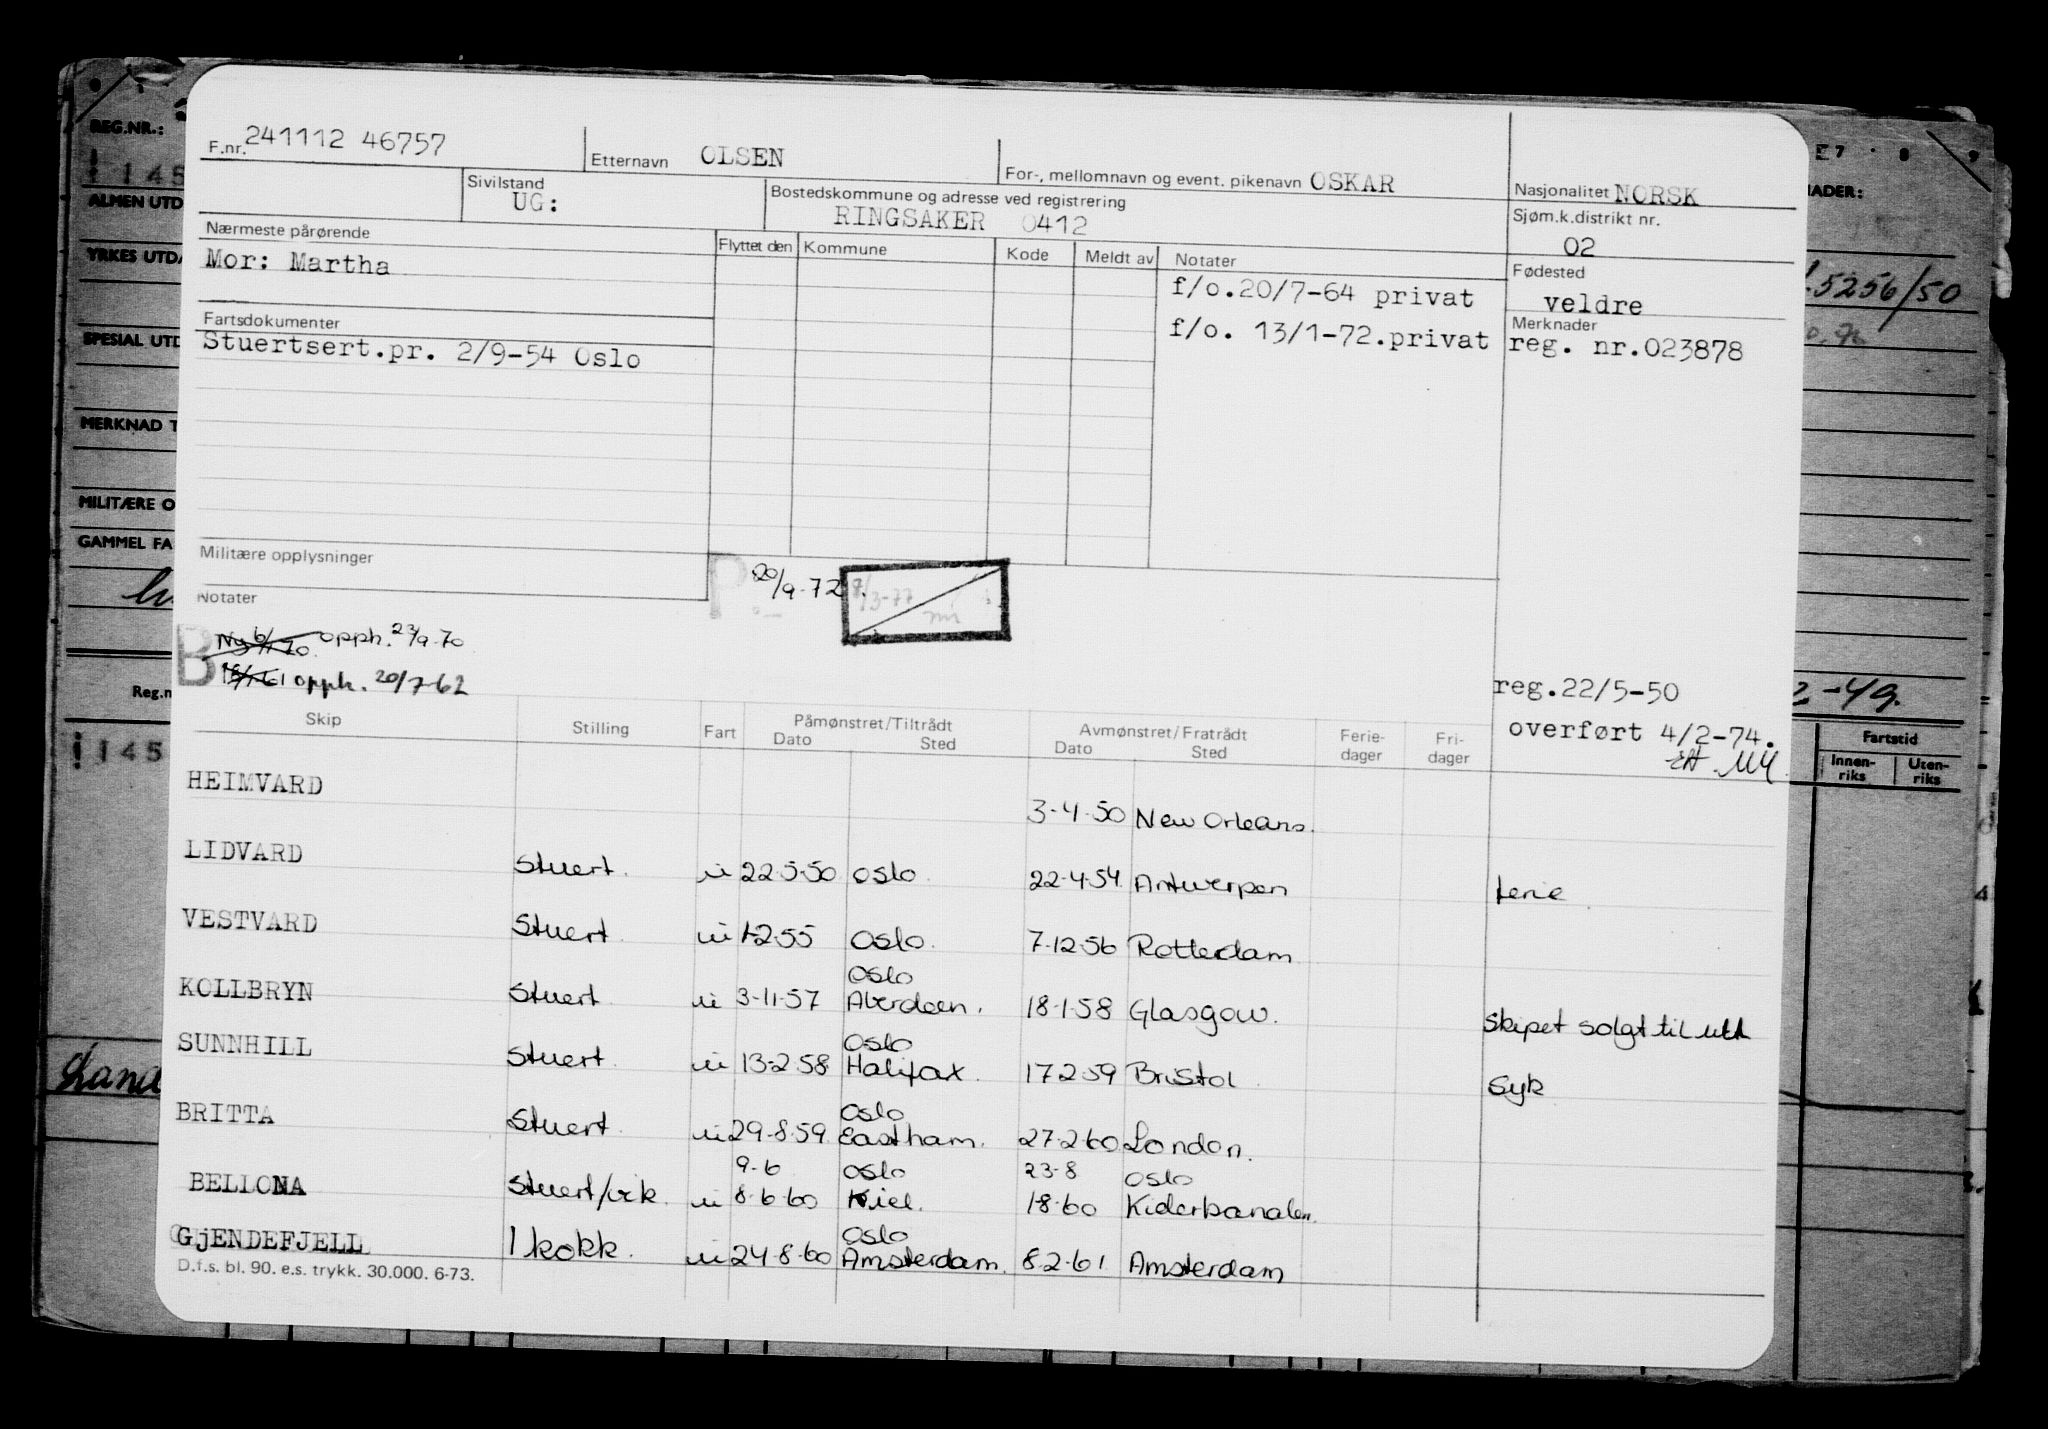 F.nr. 241112 46757
Etternavn OLSEN
For-, mellomnavn og event. pikenavn OSKAR
Nasjonalitet NORSK
Sivilstand
UG:
Bostedskommune og adresse ved registrering
RINGSAKER 0412
Sjøm.k.distrikt nr.
02
Nærmeste pårørende
Mor: Martha
Flyttet den Kommune Kode Meldt av Notater
f/o.20/7-64 privat
f/o. 13/1-72.privat
Fødested
veldre
Merknader
reg. nr.023878
Fartsdokumenter
Stuertsert.pr. 2/9-54 Oslo
Militære opplysninger
P 20/9-72
7/3-77
Notater
B Ny 6/1 70 opph. 23/9-70
opph. 20/7-62
reg.22/5-50
overført 4/2-74.
Skip Stilling Fart Påmønstret/Tiltrådt Dato Sted Avmønstret/Fratrådt Dato Sted Ferie-dager Fri-dager
HEIMVARD 3-4-50 New Orleans.
LIDVARD Stuert. u 22-5-50 Oslo. 22-4-54 Antwerpen ferie
VESTVARD Stuert u 1-2-55 Oslo. 7-12-56 Rotterdam
Oslo
KOLLBRYN Stuert u 3-11-57 Aberdeen. 18-1-58 Glasgow. Skipet solgt til utl
Oslo
SUNNHILL Stuert. u 13-2-58 Halifax. 17-2-59 Bristol Syk
Oslo
BRITTA Stuert. u 29-8-59 Eastham. 27-2-60 London.
9-6 Oslo 23-8 Oslo
BELLONA Stuert/vik. u 8-6-60 Kiel. 1-8-60
Oslo
GjENDEFJELL 1 kokk. u 24-8-60 Amsterdam. 8-2-61 Amsterdam
D.f.s. bl. 90. e.s. trykk. 30.000. 6-73.
REG.NR.:
145
ALMEN UTD
YRKES UTDA
SPESIAL UTD
MERKNAD T
MILITÆRE O
GAMMEL FA
Reg.n
145
7 8 9
NADER:
5256/50
2-49.
Fartstid
Innen-riks Uten-riks